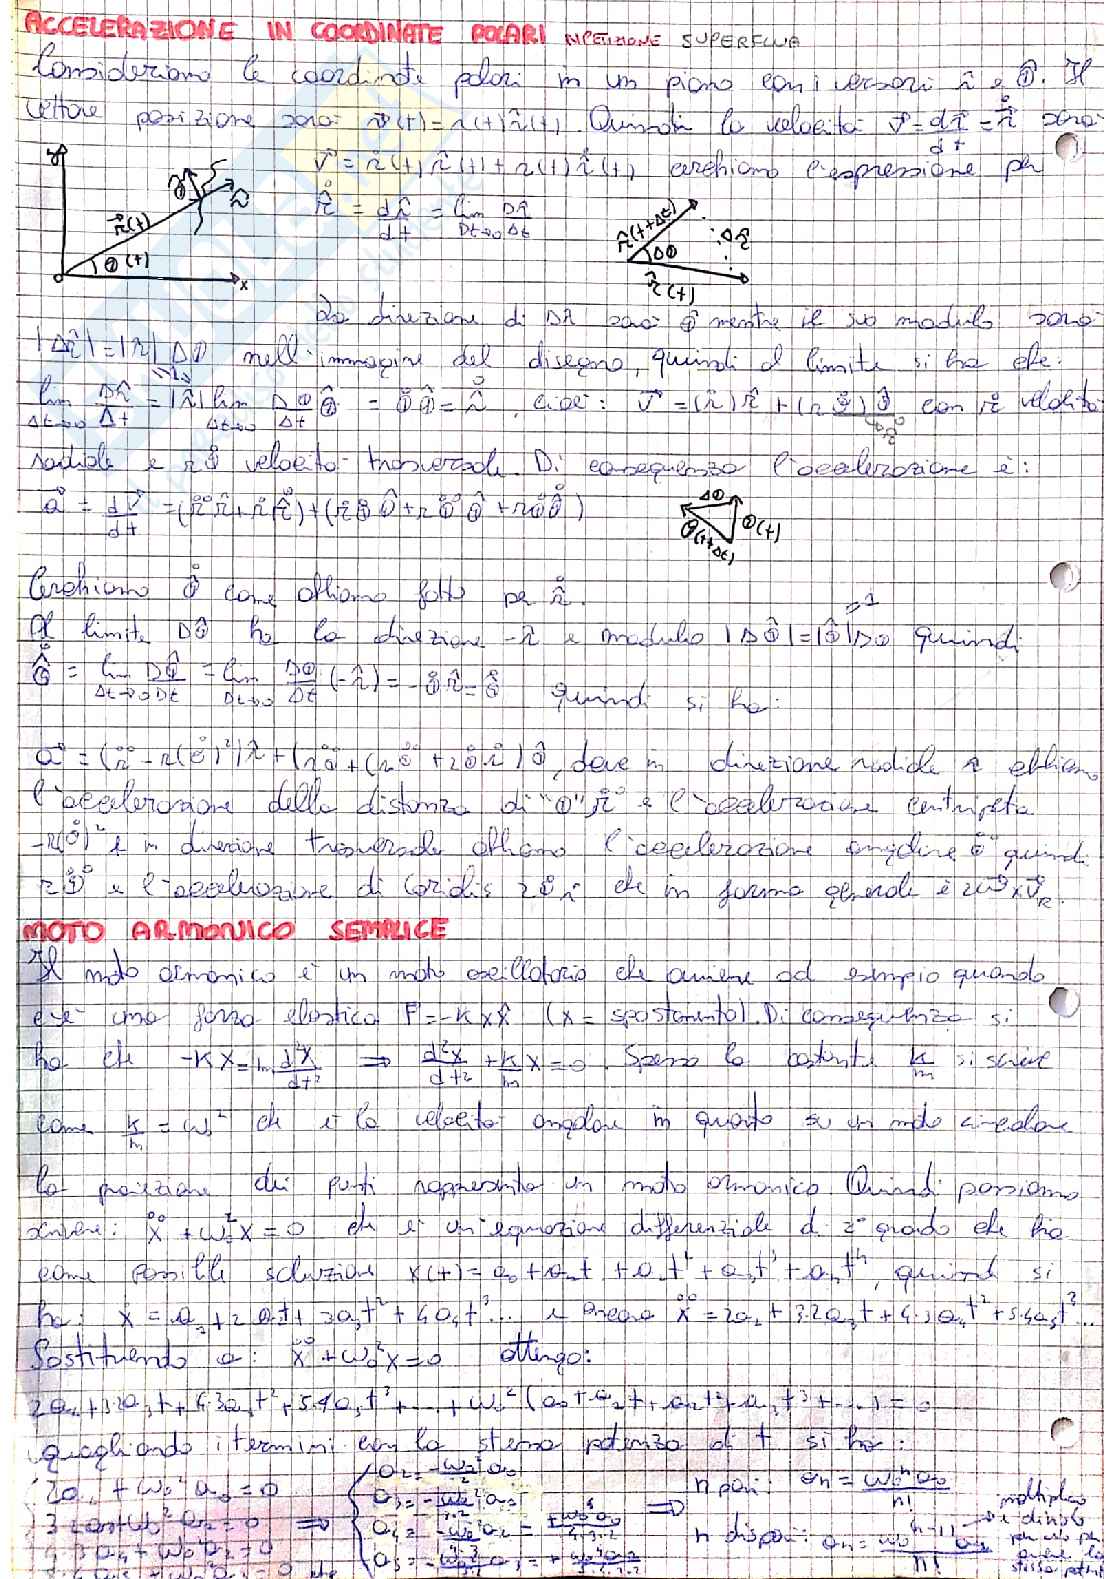 ACCELERAZIONE IN COORDINATE POLARI RIPETIZIONE SUPERFLUA
Consideriamo le coordinate polari in un piano con i versori r̂ e θ̂. Il
vettore posizione sarà r⃗(t)=r(t)r̂(t). Quindi la velocità v⃗=dr⃗/dt=ṙ⃗ sarà
v⃗=ṙ(t)r̂(t)+r(t)r̂̇(t), cerchiamo l'espressione per
r̂̇ = dr̂/dt = lim Δt→0 Δr̂/Δt
y θ̂ r̂ r⃗(t) θ(t) x
r̂(t+Δt) Δr̂ Δθ r̂(t)
La direzione di Δr̂ sarà θ̂ mentre il suo modulo sarà
|Δr̂|=|r̂|Δθ nell'immagine del disegno, quindi il limite si ha che:
lim Δt→0 Δr̂/Δt = |r̂| lim Δt→0 Δθ/Δt θ̂ = θ̇θ̂ = r̂̇, cioè: v⃗=(ṙ)r̂+(rθ̇)θ̂ con ṙ velocità
radiale e rθ̇ velocità trasversale. Di conseguenza l'accelerazione è:
a⃗ = dv⃗/dt =(r̈r̂+ṙr̂̇)+(ṙθ̇θ̂+rθ̈θ̂+rθ̇θ̂̇)
Δθ θ(t) θ(t+Δt)
Cerchiamo θ̂̇ come abbiamo fatto per r̂̇.
Al limite Δθ̂ ha la direzione -r̂ e modulo |Δθ̂|=|θ̂|Δθ quindi
=1
θ̂̇ = lim Δt→0 Δθ̂/Δt = lim Δt→0 Δθ/Δt (-r̂) = -θ̇r̂ = θ̂̇ quindi si ha:
a⃗=(r̈-r(θ̇)²)r̂+(rθ̈+2θ̇ṙ)θ̂, dove in direzione radiale r abbiamo
l'accelerazione della distanza di "O" r̈ e l'accelerazione centripeta
-r(θ̇)² e in direzione trasversale abbiamo l'accelerazione angolare θ̈ quindi
rθ̈ e l'accelerazione di Coriolis 2θ̇ṙ che in forma generale è 2ω⃗×v⃗R.
MOTO ARMONICO SEMPLICE
Il moto armonico è un moto oscillatorio che avviene ad esempio quando
c'è una forza elastica F=-kxx̂ (x = spostamento). Di conseguenza si
ha che -kx=m d²x/dt² ⇒ d²x/dt² + k/m x=0. Spesso la costante k/m si scrive
come k/m = ω₀² che è la velocità angolare in quanto su un moto circolare
la proiezione dei punti rappresenta un moto armonico. Quindi possiamo
scrivere: ẍ+ω₀²x=0 che è un'equazione differenziale di 2° grado che ha
come possibile soluzione x(t)=a₀+a₁t+a₂t²+a₃t³+a₄t⁴, quindi si
ha: ẋ=a₁+2a₂t+3a₃t²+4a₄t³... e ancora ẍ=2a₂+3·2a₃t+4·3a₄t²+5·4a₅t³...
Sostituendo a: ẍ+ω₀²x=0 ottengo:
2a₂+3·2a₃t+4·3a₄t²+5·4a₅t³+...+ω₀²(a₀+a₁t+a₂t²+a₃t³+...)=0
uguagliando i termini con la stessa potenza di t si ha:
2a₂+ω₀²a₀=0
⇒
n pari: aₙ=ω₀ⁿa₀/n!
n dispari: aₙ=ω₀ⁿ⁻¹a₁/n!
moltiplico
e divido
per ω₀ per
avere la
stessa potenza